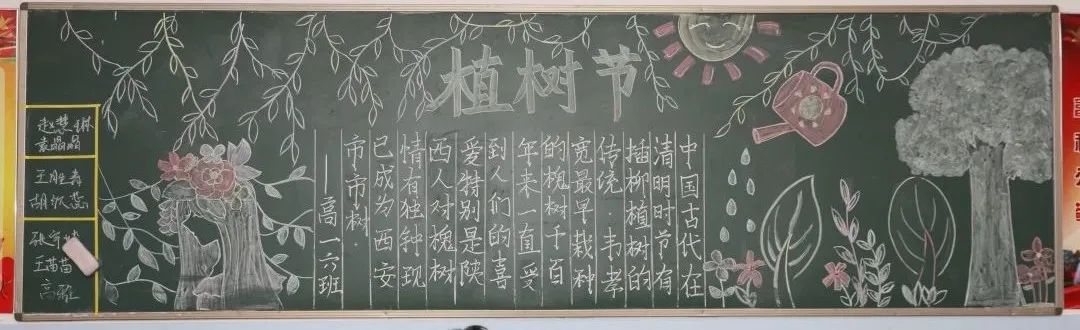 植树节
中国古代在
清明时节有
插柳植树的
传统.韦孝
宽最早栽种
的槐树千百
年来一直受
到人们的喜
爱特别是陕
西人对槐树
情有独钟现
已成为西安
市市树.
——高一六班
袁晶晶
王苗苗
高雅